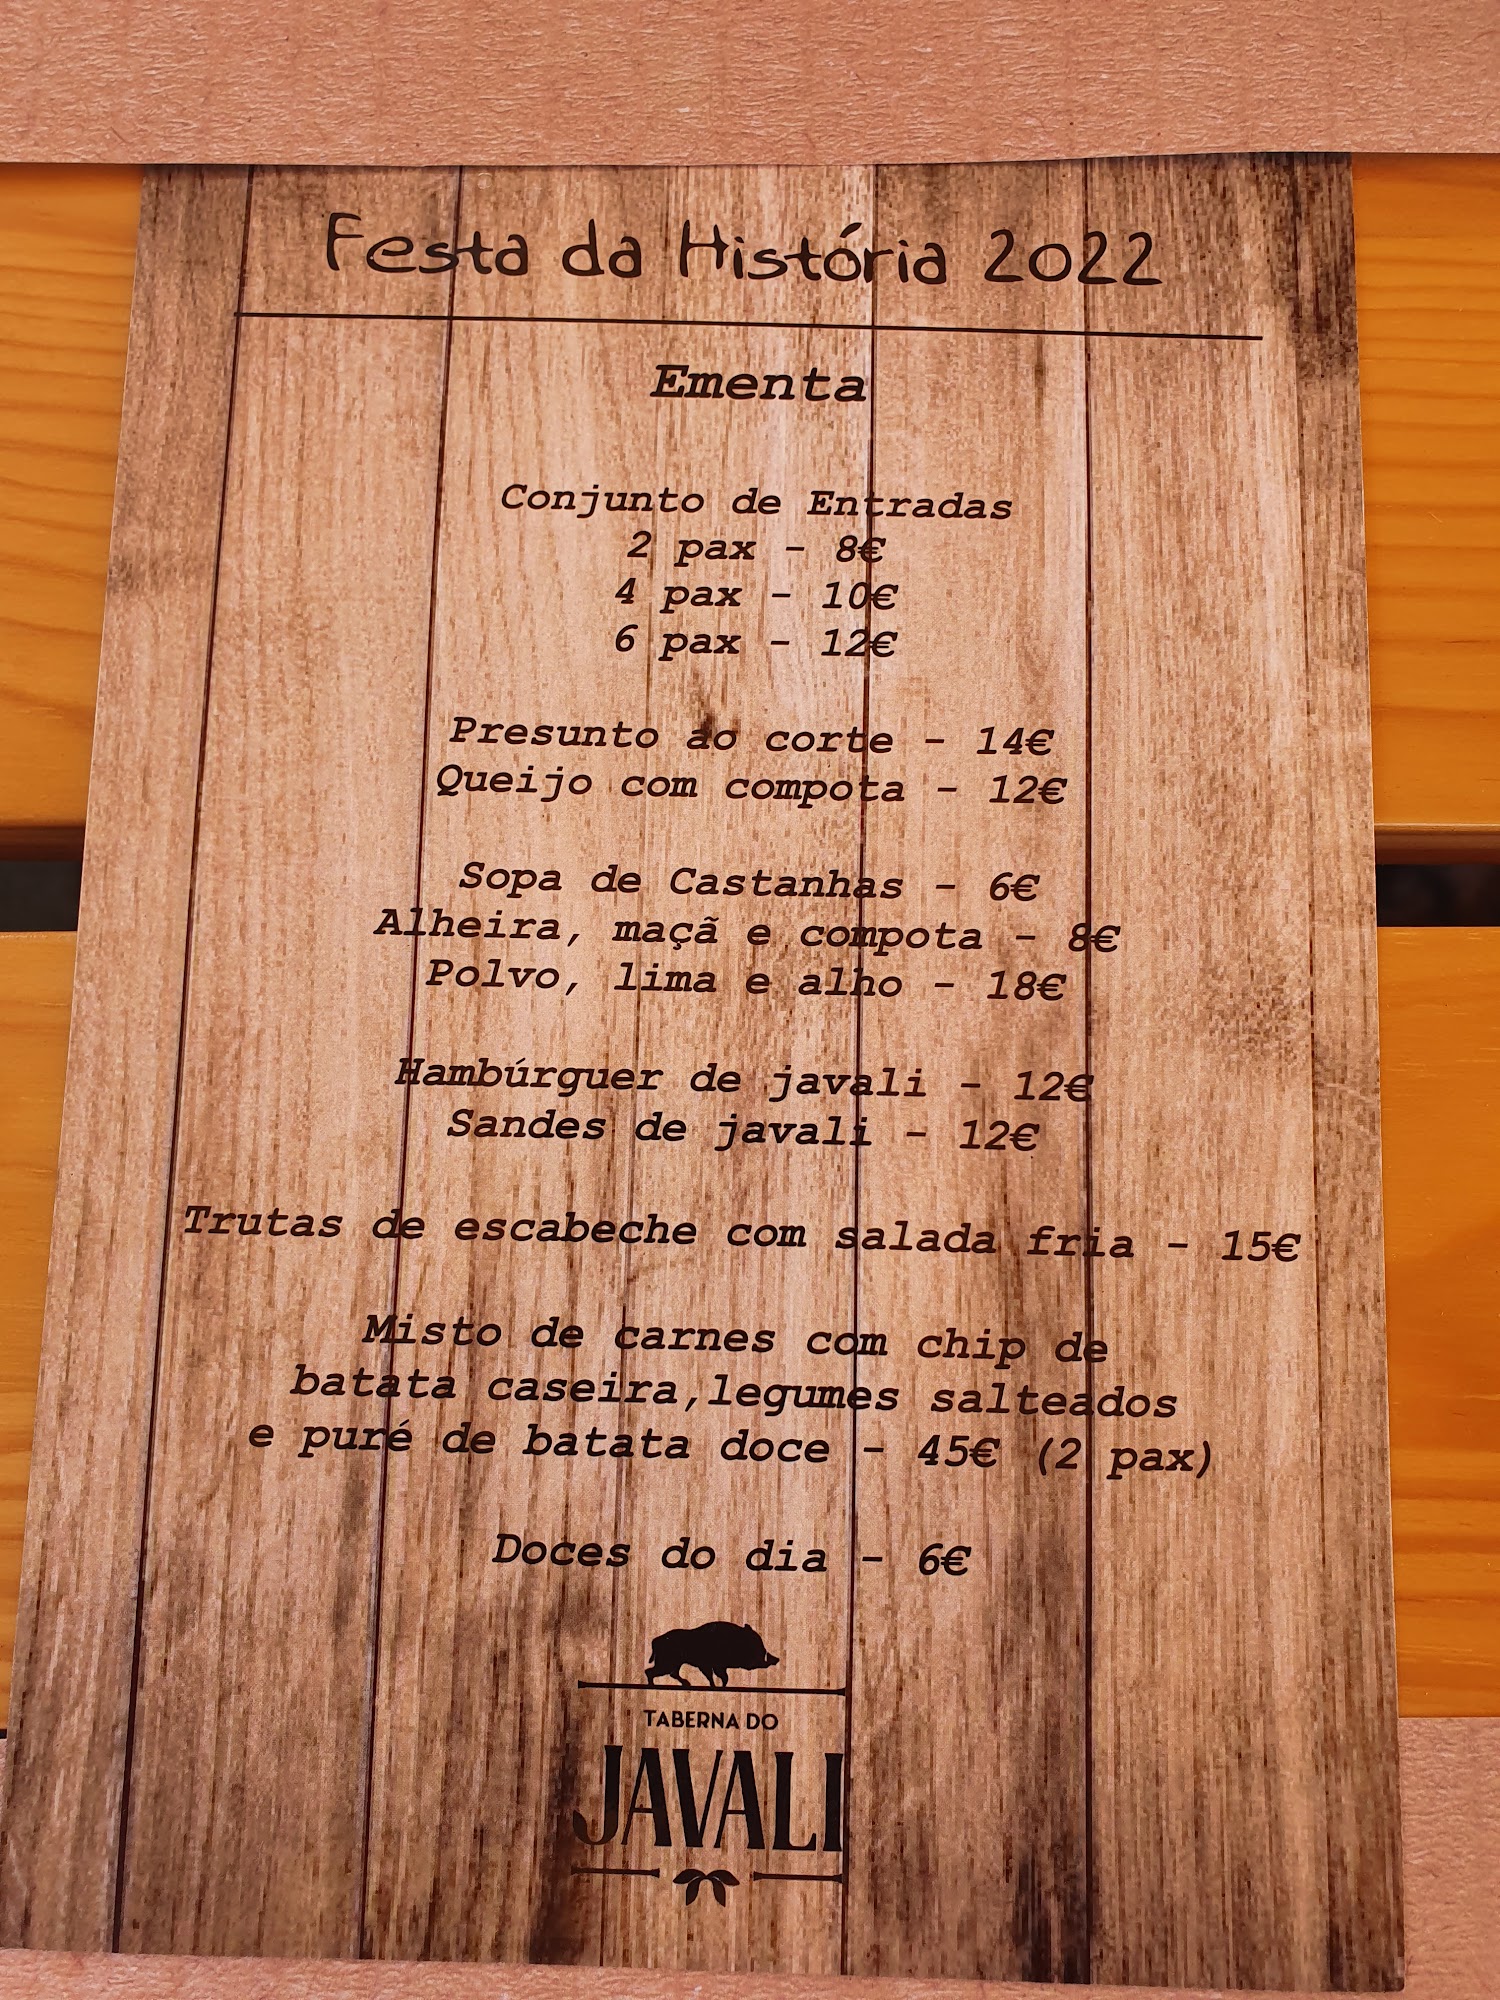 Festa da História 2022
Ementa
Conjunto de Entradas
2 pax - 8€
4 pax - 10€
6 pax - 12€
Presunto ao corte - 14€
Queijo com compota - 12€
Sopa de Castanhas - 6€
Alheira, maçã e compota - 8€
Polvo, lima e alho - 18€
Hambúrguer de javali - 12€
Sandes de javali - 12€
Trutas de escabeche com salada fria - 15€
Misto de carnes com chip de
batata caseira,legumes salteados
e puré de batata doce - 45€ (2 pax)
Doces do dia - 6€
TABERNA DO
JAVALI